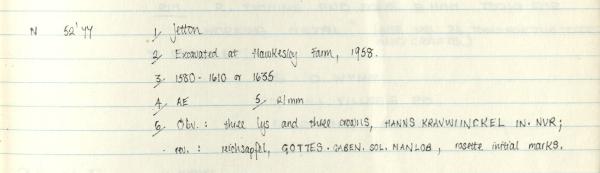 N 52'77 1/ Jetton
2/ Excavated at Hawkesley Farm, 1958.
3/ 1580-1610 or 1635
4/ AE 5/ 21mm
6/ Obv.: three lys and three crowns, HANNS KRAVWINCKEL IN. NUR;
rev.: reichsapfel, GOTTES. GABEN. SOL. MANLOB, rosette initial marks.